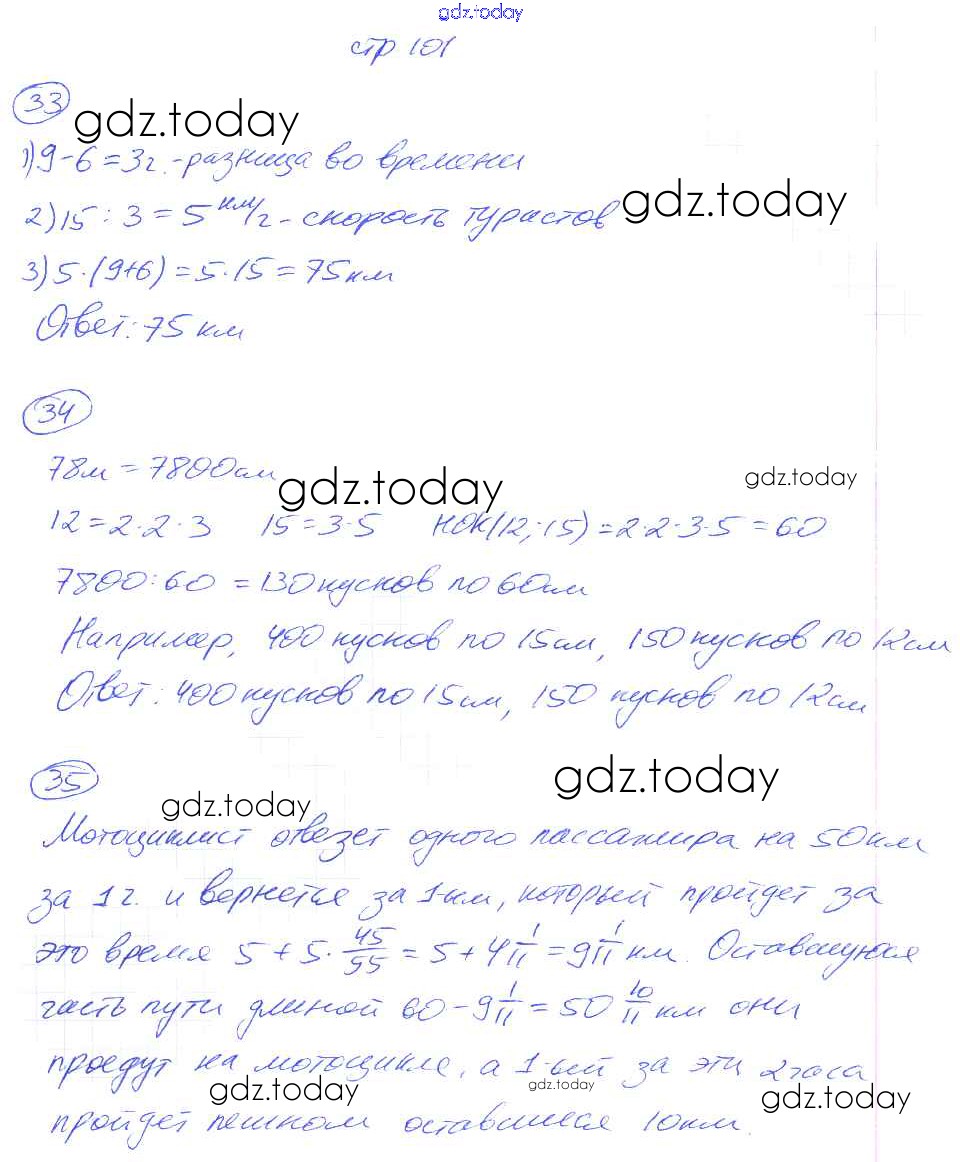 gdz.today
стр 101
33
gdz.today
1) 9-6=3г. - разница во времени
gdz.today
2) 15 : 3 = 5 км/г - скорость туристов
3) 5·(9+6) = 5·15 = 75 км
Ответ: 75 км
34
78м = 7800см
gdz.today
gdz.today
12=2·2·3 15=3·5 НОК(12;15)=2·2·3·5=60
7800:60 = 130 кусков по 60см
Например, 400 кусков по 15см, 150 кусков по 12см
Ответ: 400 кусков по 15см, 150 кусков по 12см
gdz.today
35
gdz.today
Мотоциклист отвезет одного пассажира на 50км
за 1 г. и вернется за 1-км, который пройдет за
это время 5 + 5·45/55 = 5 + 4 1/11 = 9 1/11 км. Оставшуюся
часть пути длиной 60 - 9 1/11 = 50 10/11 км они
проедут на мотоцикле, а 1-ый за эти 2 часа
gdz.today
gdz.today
gdz.today
пройдет пешком оставшиеся 10км.